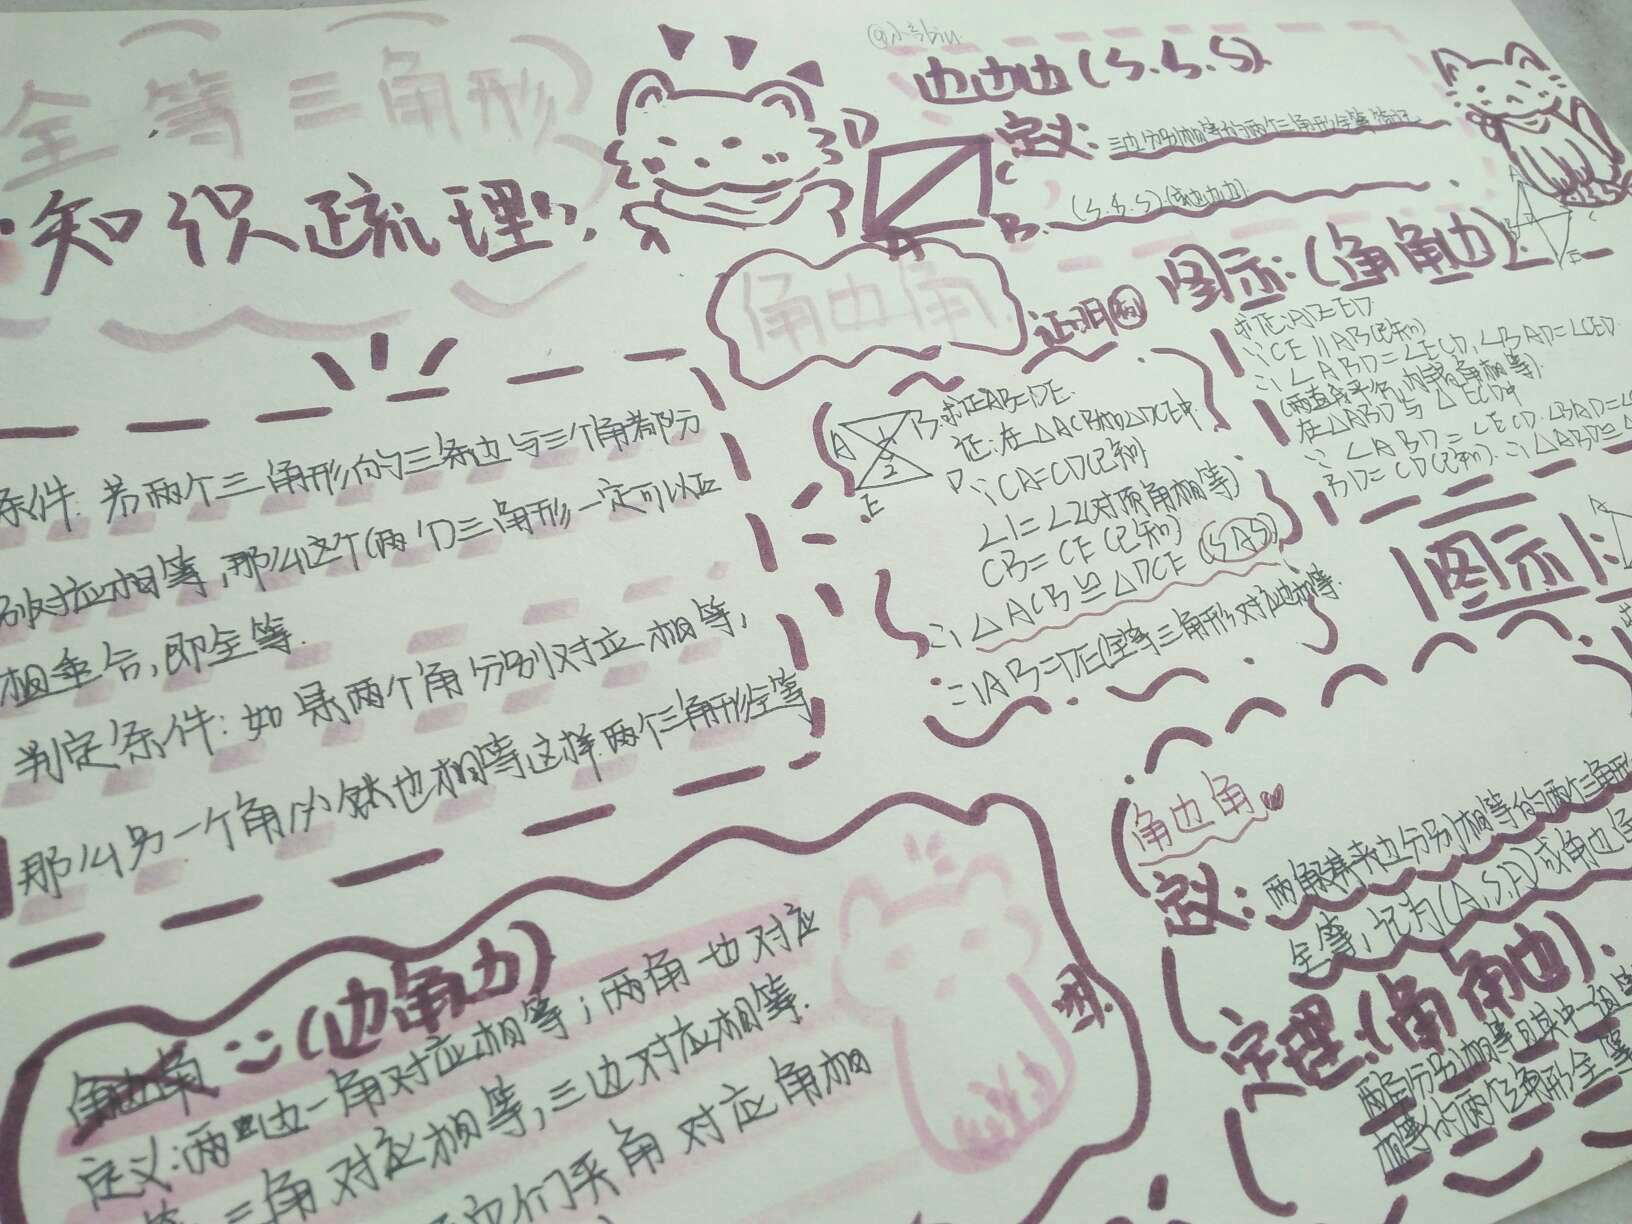 全等三角形
知识疏理
条件:若两个三角形的三条边与三个角都分
别对应相等,那么这个(两个)三角形一定可以互
相重合,即全等.
判定条件:如果两个角分别对应相等,
那么另一个角必然也相等这样两个三角形全等
角边角
(边角边)
定义:两边一角对应相等;两角也对应
三角对应相等,三边对应相等.
夹角对应角相
@小
边边边(S.S.S)
定义:三边分别相等的两个三角形全等简记
(S.S.S).(或边边边)
D
C
B
A
角边角
证明例
A
B
D
E
1
2
求证AB=DE.
证:在△ACB和△DCE中
∵CA=CD(已知)
∠1=∠2(对顶角相等)
CB=CE(已知)
∴△ACB≌△DCE(SAS)
∴AB=DE(全等三角形对应边相等.
图示:(角角边)
求证:AD=ED
∵CE∥AB(已知)
∴∠ABD=∠ECD,∠BAD=∠CED
(两直线平行,内错角相等)
在△ABD与△ECD中
∵∠ABD=∠ECD.∠BAD=∠
BD=CD(已知).∴△ABD≌△
图示:
角边角
定义:两角及其夹边分别相等的两个三角形
全等,记为(A.S.A)或角边
定理:(角角边).
两角分别相等且其中一组等
相等的两个三角形全等